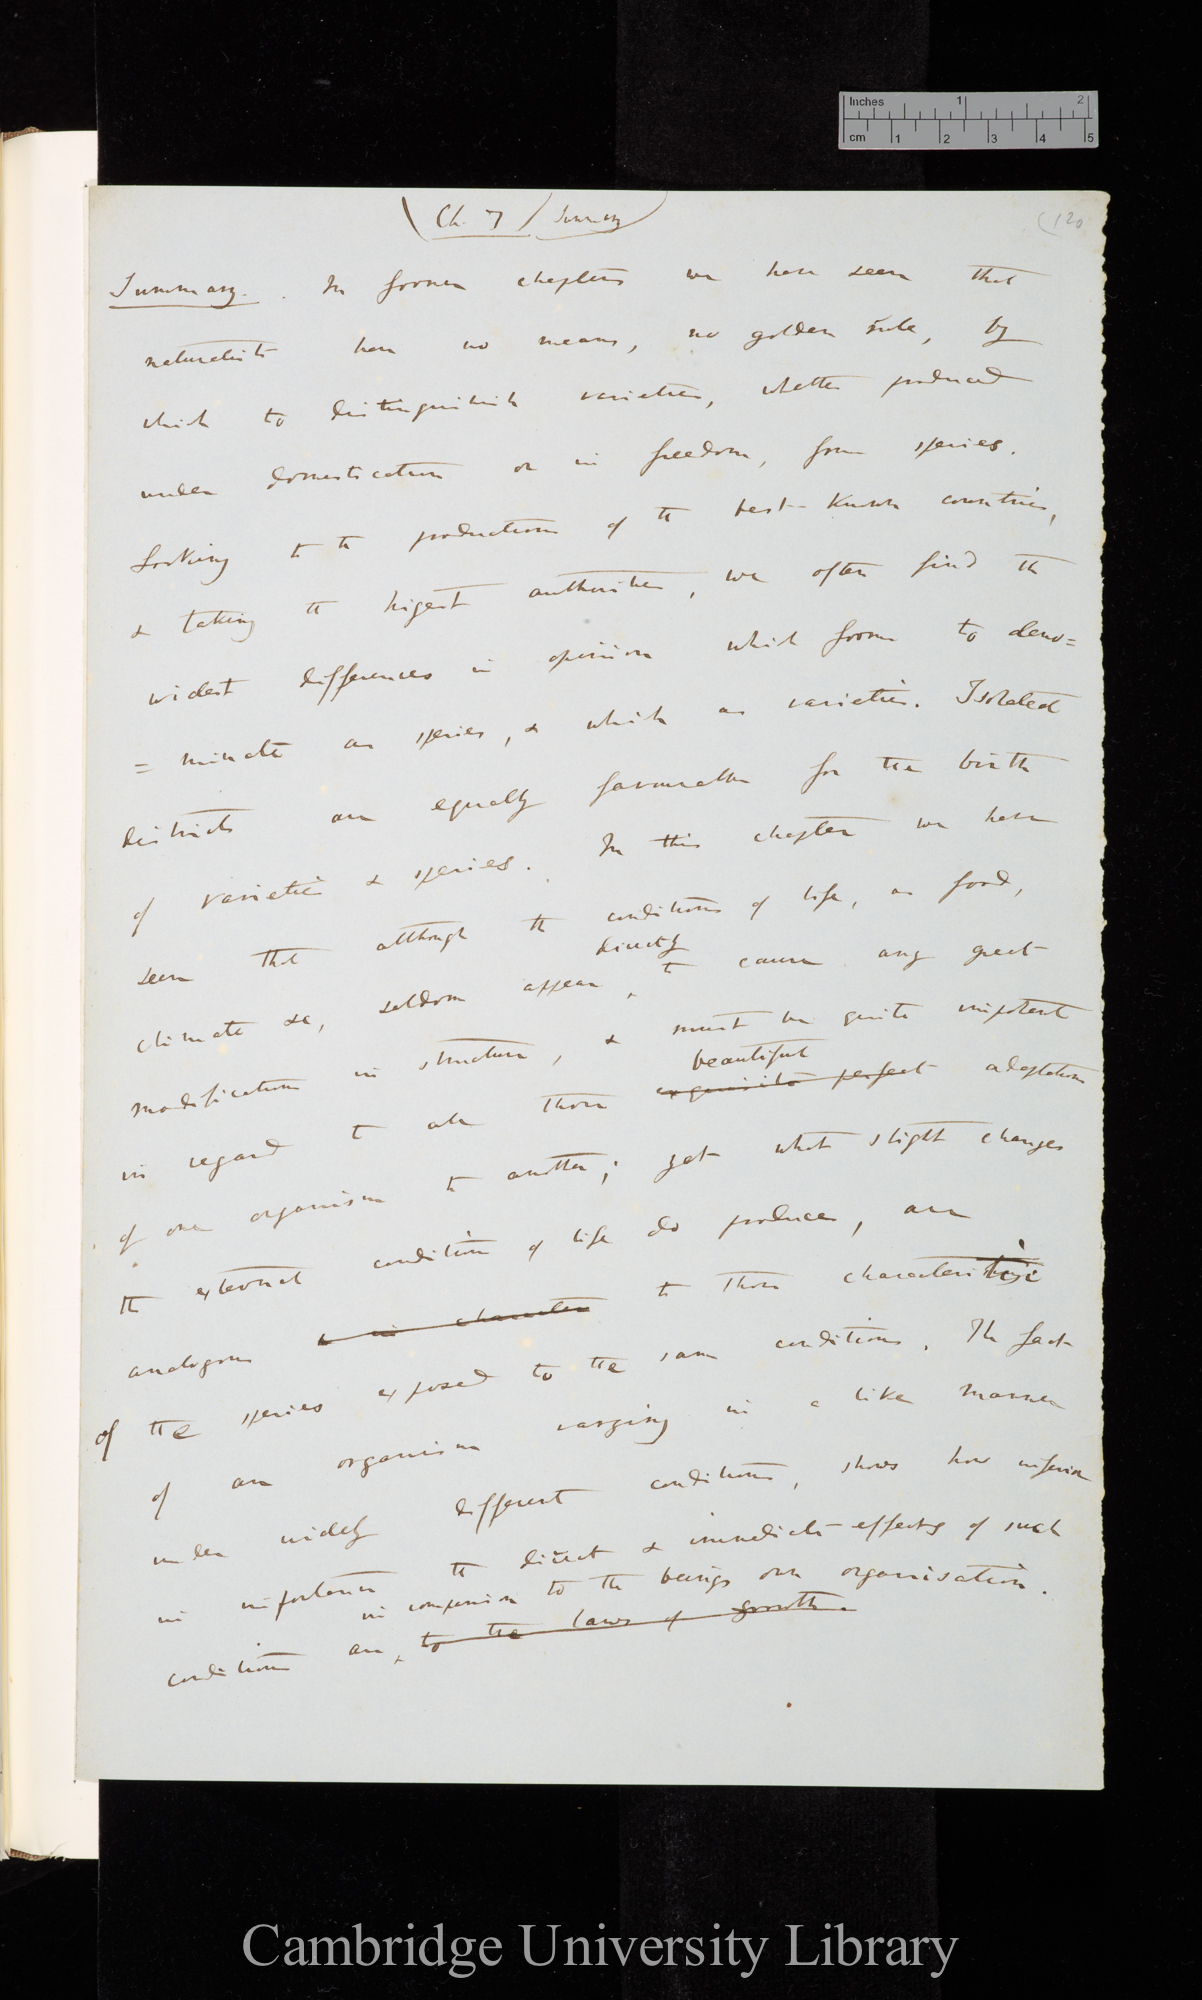 Inches 1 2
cm 1 2 3 4 5
(Ch. 7) Summary)
(120
Summary. In former chapters we have seen that
naturalists have no means, no golden rule, by
which to distinguish varieties, whether produced
under domestication or in freedom, from species.
Looking to the productions of the best-known countries,
& taking the highest authorities, we often find the
widest differences in opinion which forms to deno=
=minate as species, & which as varieties. Isolated
districts are equally favourable for the birth
of varieties & species. In this chapter we have
seen that although the conditions of life, as food,
directly
climate &c, seldom appear, to cause any great
modification in structure, & must be quite impotent
beautiful
in regard to all those exquisite perfect adaptations
of one organism to another; yet what slight changes
the external condition of life do produce, are
analogous in character to those characteristic
of the species exposed to the same conditions. The fact
of an organism varying in a like manner
under widely different conditions, shows how inferior
in importance the direct & immediate effects of such
in comparison to the beings own organisation.
conditions are, to the laws of growth.
Cambridge University Library